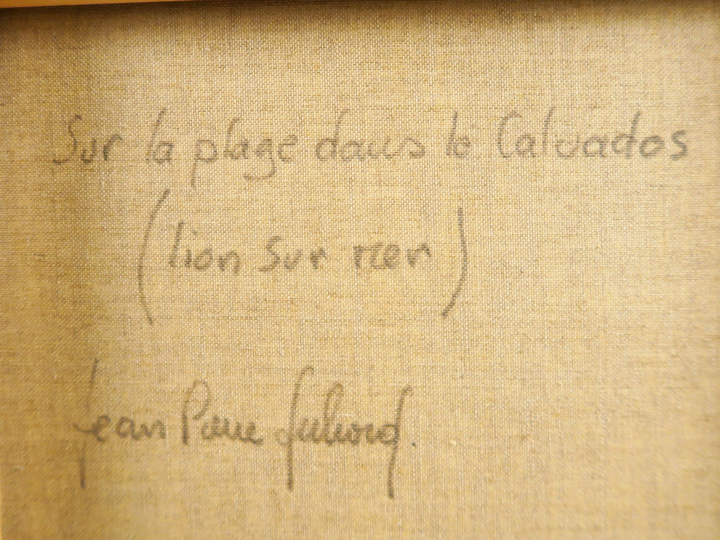 Sur la plage dans le Calvados
(lion sur mer)
Jean Pierre